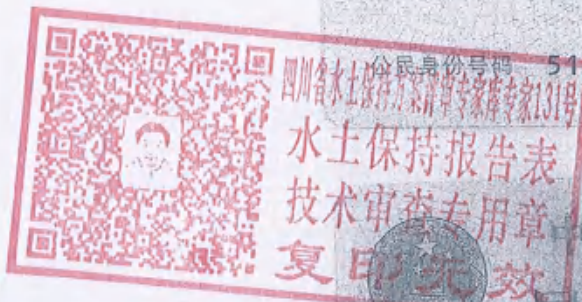 公民身份号码 51
四川省水土保持方案评审专家库专家131号
水土保持报告表
技术审查专用章
复印无效